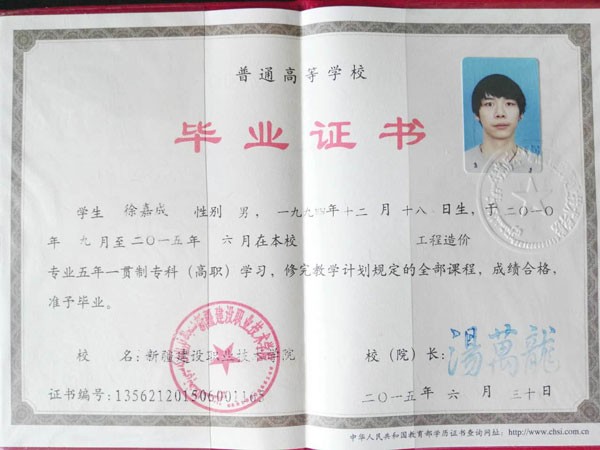 普通高等学校
毕业证书
学生 徐嘉成 性别 男，一九九四年十二月十八日生，于二〇一〇
年 九月至二〇一五年 六月在本校 工程造价
专业五年一贯制专科（高职）学习，修完教学计划规定的全部课程，成绩合格，
准予毕业。
校 名：新疆建设职业技术学院 校（院）长： 湯萬龍
证书编号： 二〇一五年 六 月 三十日
中华人民共和国教育部学历证书查询网址：http://www.chsi.com.cn